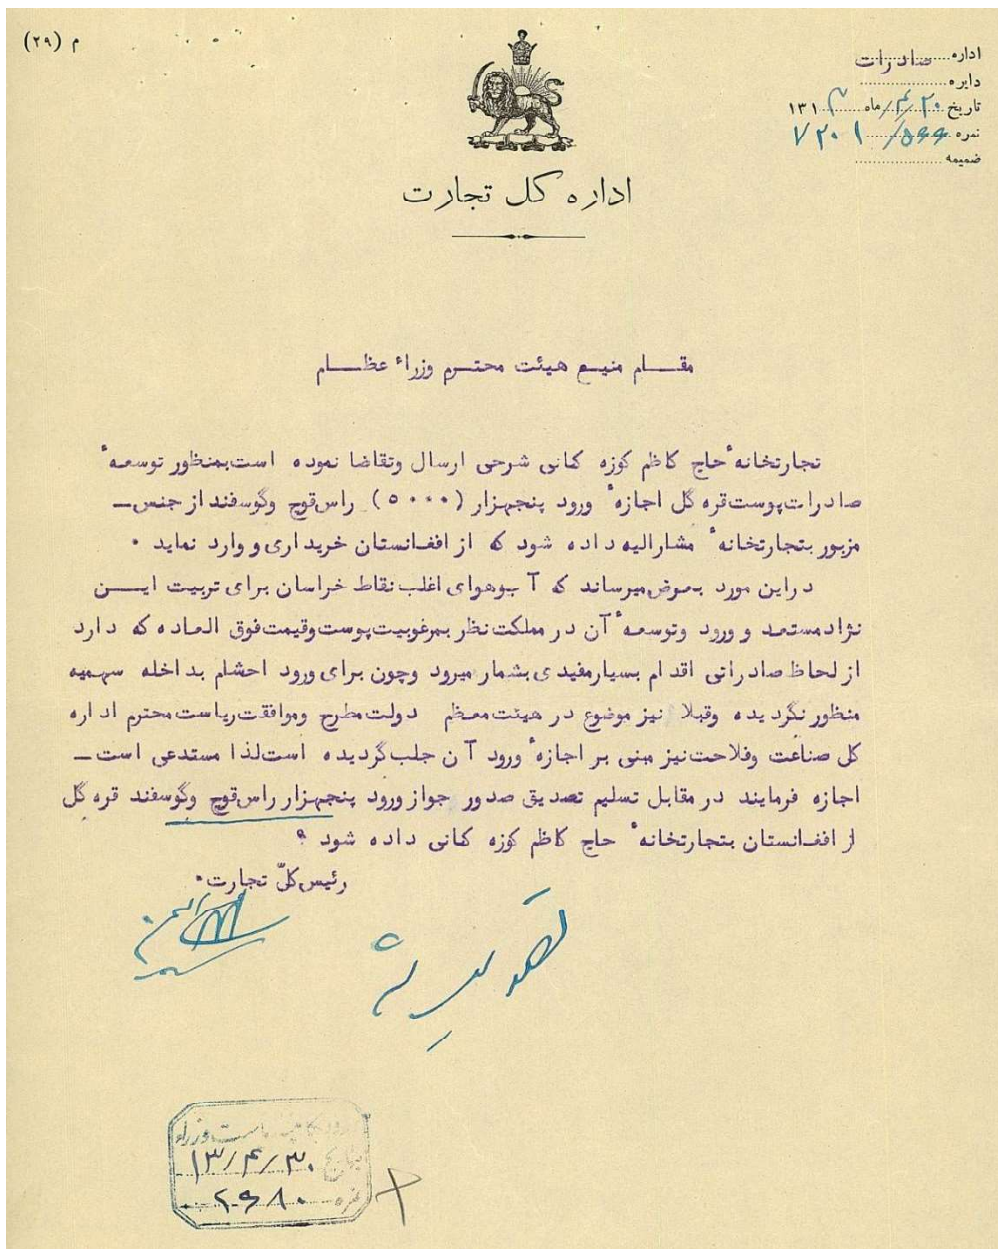 م (۲۹)
اداره صادرات
دایره
تاریخ ۲۰/۴/ ماه ۱۳۱۳
نمره ۷۲۰۱/۵۹۹
ضمیمه
اداره کل تجارت
مقام منیع هیئت محترم وزراء عظام
تجارتخانهٔ حاج کاظم کوزه کنانی شرحی ارسال وتقاضا نموده است بمنظور توسعهٔ
صادرات پوست قره گل اجازهٔ ورود پنجهزار (۵۰۰۰) راس قوچ وگوسفند از جنس ـ
مزبور بتجارتخانهٔ مشارالیه داده شود که از افغانستان خریداری و وارد نماید ۰
در این مورد بعرض میرساند که آب وهوای اغلب نقاط خراسان برای تربیت ایـــن
نژاد مستعد و ورود وتوسعهٔ آن در مملکت نظر بمرغوبیت پوست وقیمت فوق العاده که دارد
از لحاظ صادراتی اقدام بسیار مفیدی بشمار میرود وچون برای ورود احشام بداخله سهمیه
منظور نگردیده وقبلا نیز موضوع در هیئت معظم دولت مطرح وموافقت ریاست محترم اداره
کل صناعت وفلاحت نیز مبنی بر اجازهٔ ورود آن جلب گردیده است لذا مستدعی است ـ
اجازه فرمایند در مقابل تسلیم تصدیق صدور جواز ورود پنجهزار راس قوچ وگوسفند قره گل
از افغانستان بتجارتخانهٔ حاج کاظم کوزه کنانی داده شود ؟
رئیس کلّ تجارت۰
تصویب شد
وزراء
بتاریخ ۱۳/۴/۳۰
نمره ۲۹۸۰